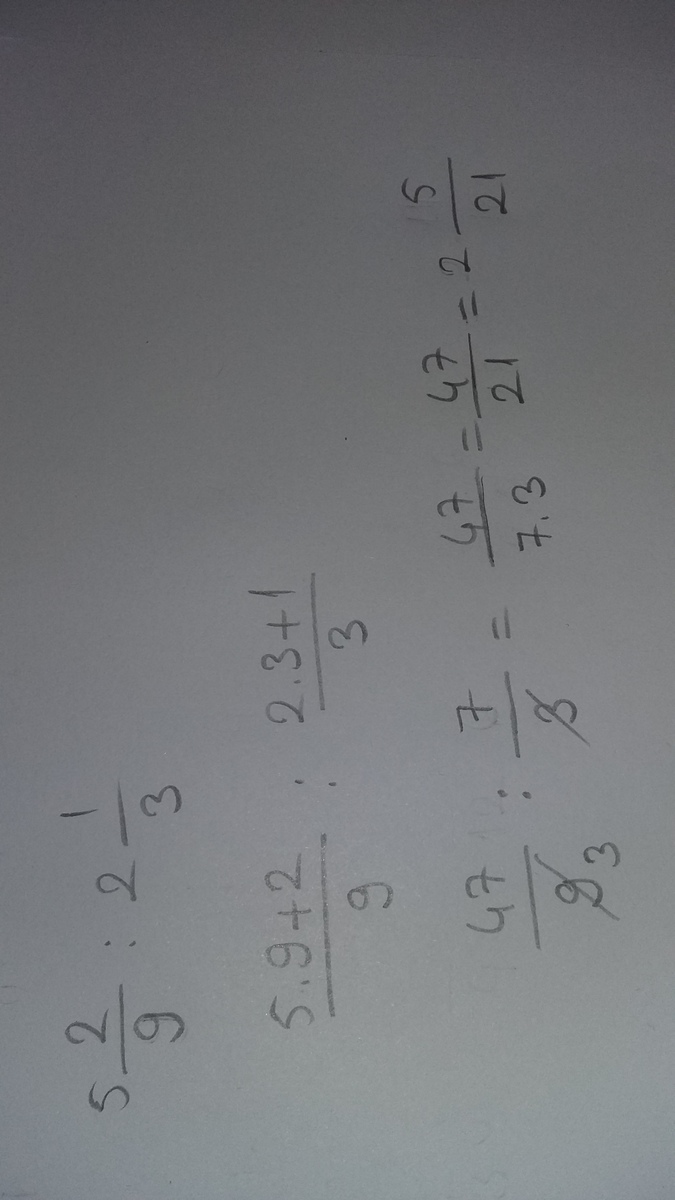 5 2/9 : 2 1/3
5.9+2/9 : 2.3+1/3
47/9 3 : 7/3 = 47/7.3 = 47/21 = 2 5/21